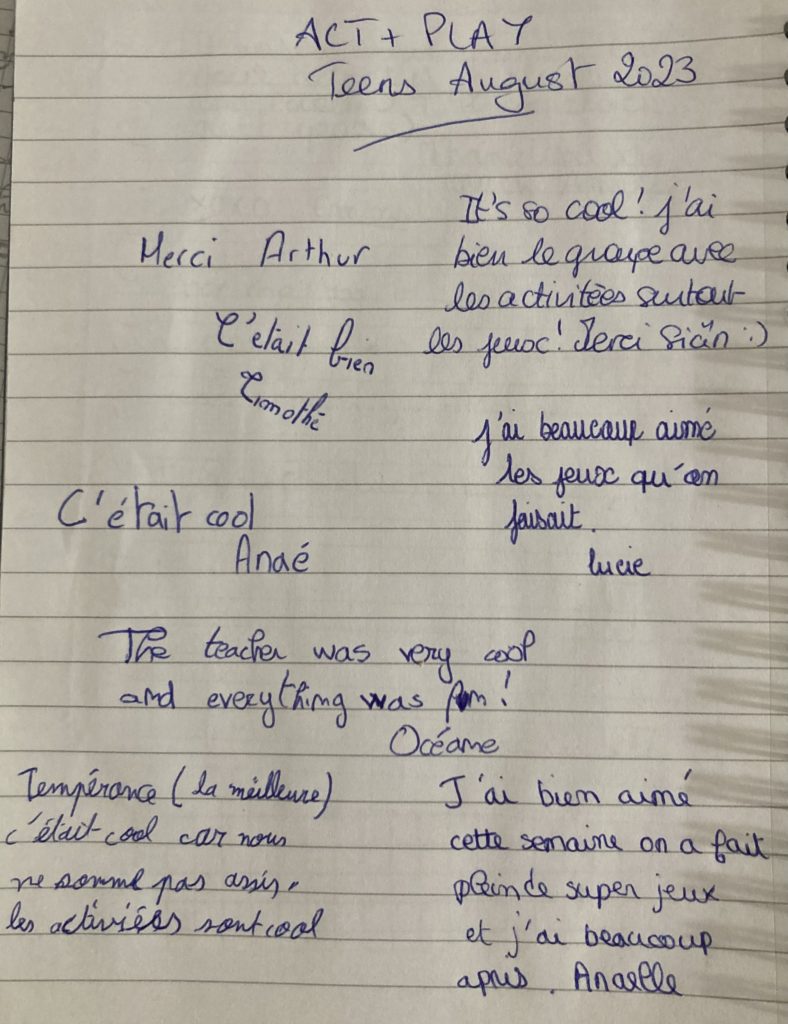 ACT + PLAY
Teens August 2023
Merci Arthur
It's so cool! j'ai
bien le groupe avec
les activitées surtout
les jeux! Merci Siân :)
C'était bien
Timothé
j'ai beaucoup aimé
les jeux qu'on
faisait.
lucie
C'était cool
Anaé
The teacher was very cool
and everything was fun!
Océane
Tempérance (la meilleure)
c'était cool car nous
ne somme pas assis.
les activiées sont cool
J'ai bien aimé
cette semaine on a fait
plein de super jeux
et j'ai beaucoup
apris. Anaelle